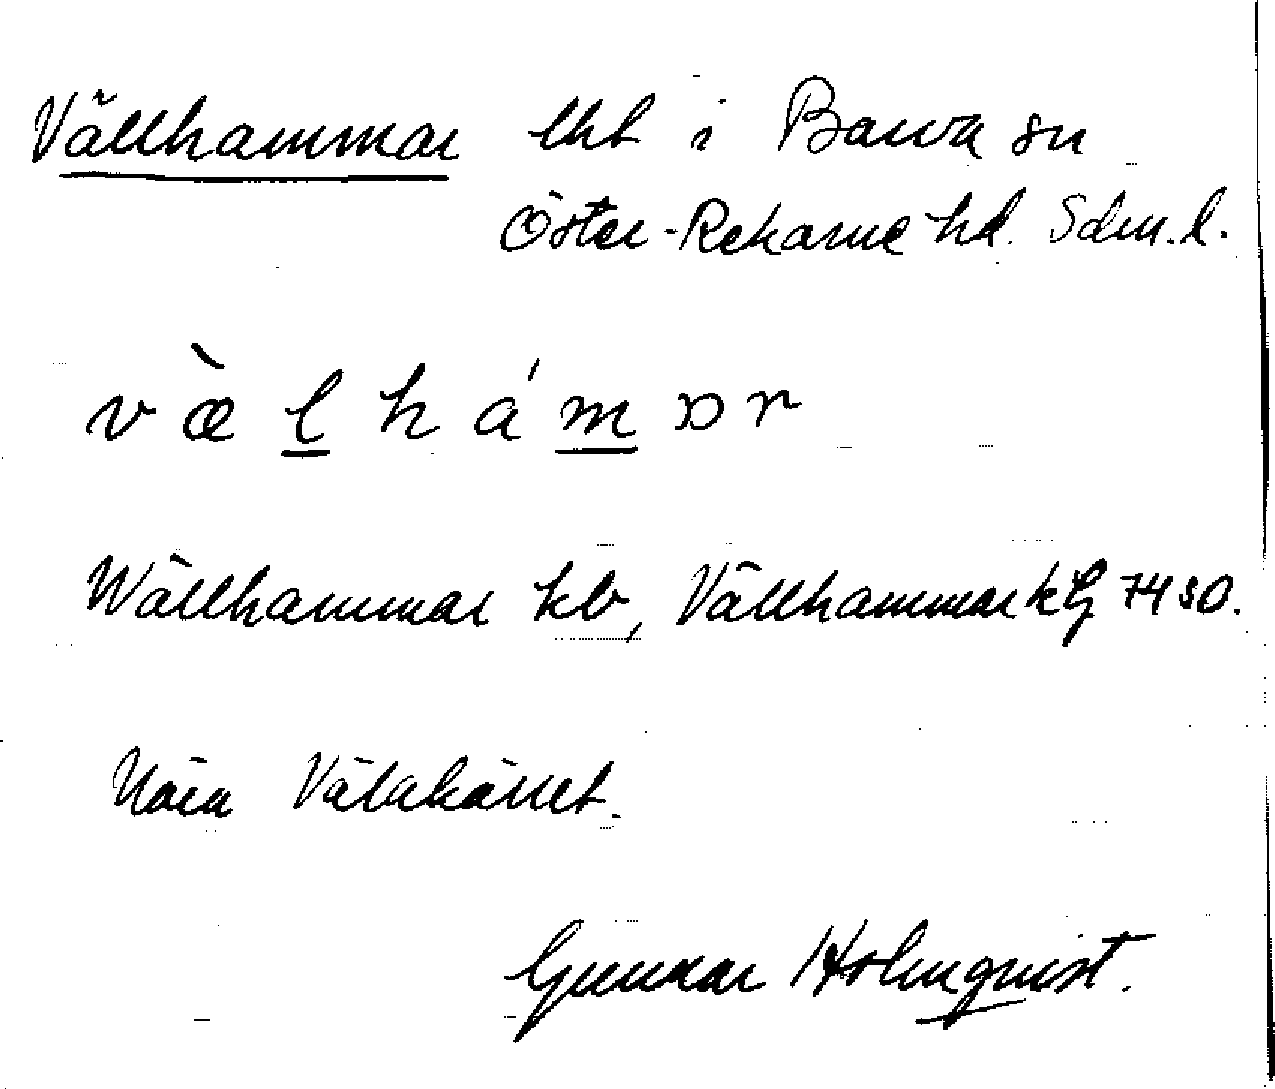 Vällhammar lht i Barva sn
Öster-Rekarne hd. Sdm.l.
v æ̀ l h á m ɔ r
Wällhammar kb, Vällhammar k 74 SO.
Nära
Gunnar Holmquist.